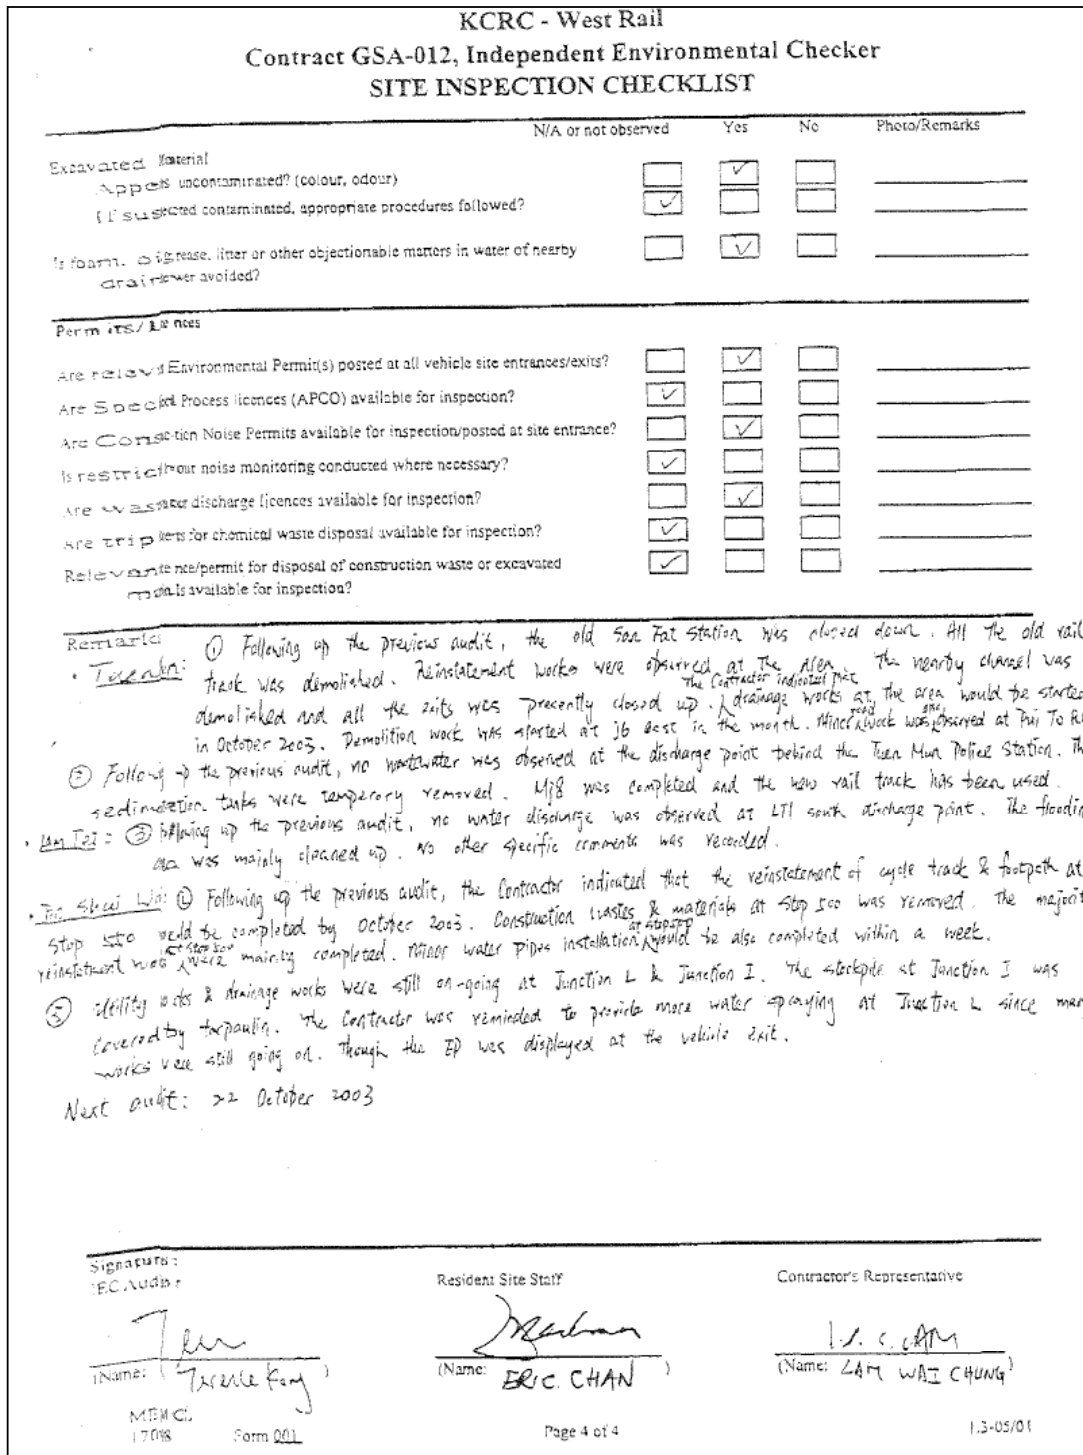 KCRC - West Rail
Contract GSA-012, Independent Environmental Checker
SITE INSPECTION CHECKLIST
N/A or not observed Yes No Photo/Remarks
Excavated Material
Appears uncontaminated? (colour, odour)
If suspected contaminated, appropriate procedures followed?
Is foam, oil, grease, litter or other objectionable matters in water of nearby
drain/sewer avoided?
Permits/Licences
Are relevant Environmental Permit(s) posted at all vehicle site entrances/exits?
Are Special Process licences (APCO) available for inspection?
Are Construction Noise Permits available for inspection/posted at site entrance?
Is restricted hour noise monitoring conducted where necessary?
Are wastewater discharge licences available for inspection?
Are trip tickets for chemical waste disposal available for inspection?
Relevant licence/permit for disposal of construction waste or excavated
materials available for inspection?
Remarks
① Following up the previous audit, the old San Fat Station was closed down. All the old rail
track was demolished. Reinstatement works were observed at the area. The nearby channel was
demolished and all the exits was presently closed up. The Contractor indicated that drainage works at the area would be started
in October 2003. Demolition work was started at j6 east in the month. Minor road work was observed at Pui To
② Following up the previous audit, no wastewater was observed at the discharge point behind the Tuen Mun Police Station. The
sedimentation tanks were temporary removed. Mj8 was completed and the new rail track has been used.
• Lam Tei: ③ Following up the previous audit, no water discharge was observed at LTI south discharge point. The flooding
area was mainly cleaned up. No other specific comments was recorded.
• Tin Shui Wai: ④ Following up the previous audit, the Contractor indicated that the reinstatement of cycle track & footpath at
Stop 550 would be completed by October 2003. Construction wastes & materials at Stop 500 was removed. The majority
reinstatement work at stop 500 were mainly completed. Minor water pipes installation at stop 500 would be also completed within a week.
⑤ Utility works & drainage works were still on-going at Junction L & Junction I. The stockpile at Junction I was
covered by tarpaulin. The Contractor was reminded to provide more water spraying at Junction L since many
works were still going on. Though the EP was displayed at the vehicle exit.
Next audit: 22 October 2003
Signature:
IEC Auditor Resident Site Staff Contractor's Representative
(Name: ) (Name: ERIC CHAN ) (Name: LAM WAI CHUNG)
MEMCL
17098 Form 001 Page 4 of 4 1.3-05/01